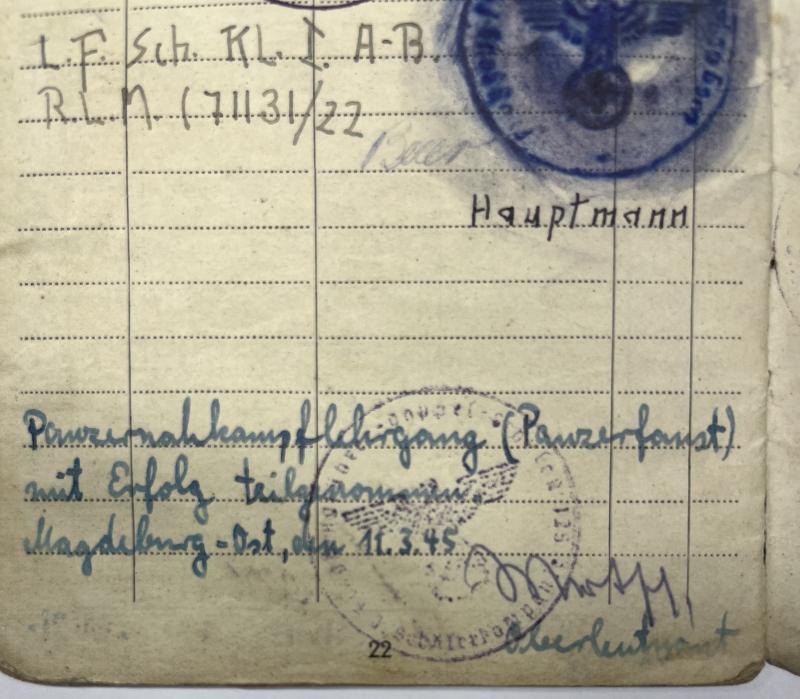 L.F. Sch. Kl. I. A-B.
R.L.M. (71131/22
Hauptmann
Panzernahkampflehrgang (Panzerfaust)
mit Erfolg teilgenommen.
Magdeburg-Ost, den 11.3.45
Oberleutnant
22